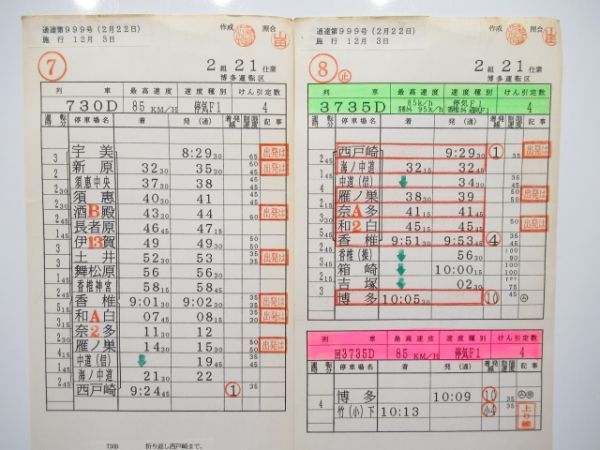 通達第999号(2月22日)
施行 12月 3日
作成 照合
⑦
2組 21仕業
博多運転区
列車 最高速度 速度種別 けん引定数
730D 85KM/H 停気F1 4
運転時分 停車場名 着 発(通) 着発線 制限速度 記事
宇美 8:29 30 出発は
3 新原 32 30 35 30 65 出発は
須恵中央 37 30 38
須恵 40 30 41
酒B殿 43 30 44 出発は
長者原 46 45 47 15
伊13賀 49 49 30
土井 52 30 53 出発は
舞松原 56 56 30
香椎神宮 58 15 58 45
香椎 9:01 30 9:02 30 出発は
和A白 07 08 出発は
奈2多 11 30 12
雁ノ巣 14 30 15 30 出発は
中道(信) 19 45
海ノ中道 21 30 22
西戸崎 9:24 45 ① 35
730D 折り返し西戸崎まで。
通達第999号(2月22日)
施行 12月 3日
作成 照合
⑧ 止
2組 21仕業
博多運転区
列車 最高速度 速度種別 けん引定数
3735D 85k/h 停気F1 4
運転時分 停車場名 着 発(通) 着発線 制限速度 記事
西戸崎 9:29 30 ① 35 出発は
海ノ中道 32 15 32 45
中道(信) 34 30
雁ノ巣 38 30 39 出発は
奈A多 41 15 41 45
和2白 45 15 45 45 出発は
香椎 9:51 30 9:53 45 ④
香椎(操) 56 30
箱崎 10:00 15
吉塚 02 30
博多 10:05 30 ⑩
列車 最高速度 速度種別 けん引定数
回3735D 85 KM/H 停気F1 4
運転時分 停車場名 着 発(通) 着発線 制限速度 記事
博多 10:09 ⑩ 35
4 竹(小)下 10:13 小4 上り線